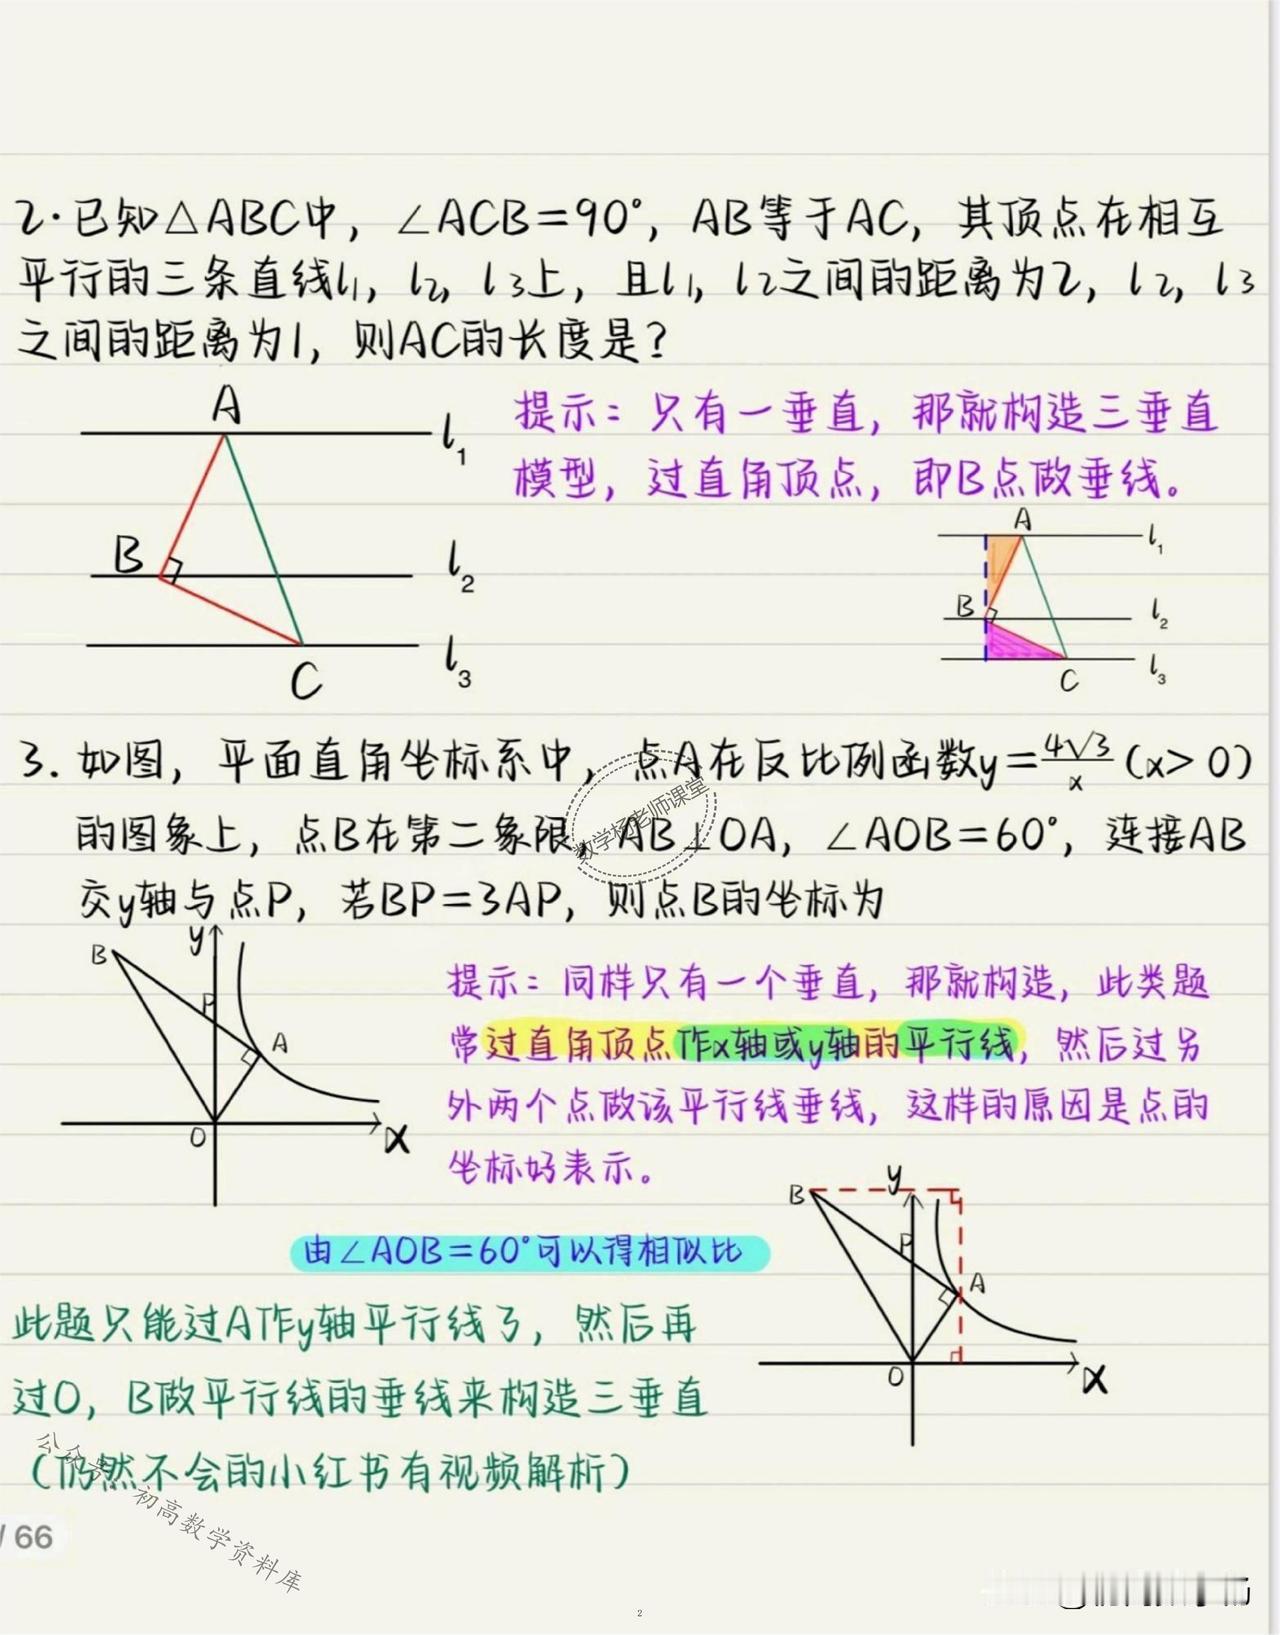 2·已知△ABC中，∠ACB=90°，AB等于AC，其顶点在相互
平行的三条直线l₁，l₂，l₃上，且l₁，l₂之间的距离为2，l₂，l₃
之间的距离为1，则AC的长度是？
提示：只有一垂直，那就构造三垂直
模型，过直角顶点，即B点做垂线。
A
l₁
B
l₂
C
l₃
A
l₁
B
l₂
C
l₃
3. 如图，平面直角坐标系中，点A在反比例函数y=4√3/x (x>0)
的图象上，点B在第二象限，AB⊥OA，∠AOB=60°，连接AB
交y轴与点P，若BP=3AP，则点B的坐标为
数学杨老师课堂
B
y
P
A
O
x
提示：同样只有一个垂直，那就构造，此类题
常过直角顶点作x轴或y轴的平行线，然后过另
外两个点做该平行线垂线，这样的原因是点的
坐标好表示。
B
y
P
A
O
x
由∠AOB=60°可以得相似比
此题只能过A作y轴平行线了，然后再
过O，B做平行线的垂线来构造三垂直
（仍然不会的小红书有视频解析）
公众号：初高数学资料库
/ 66
2